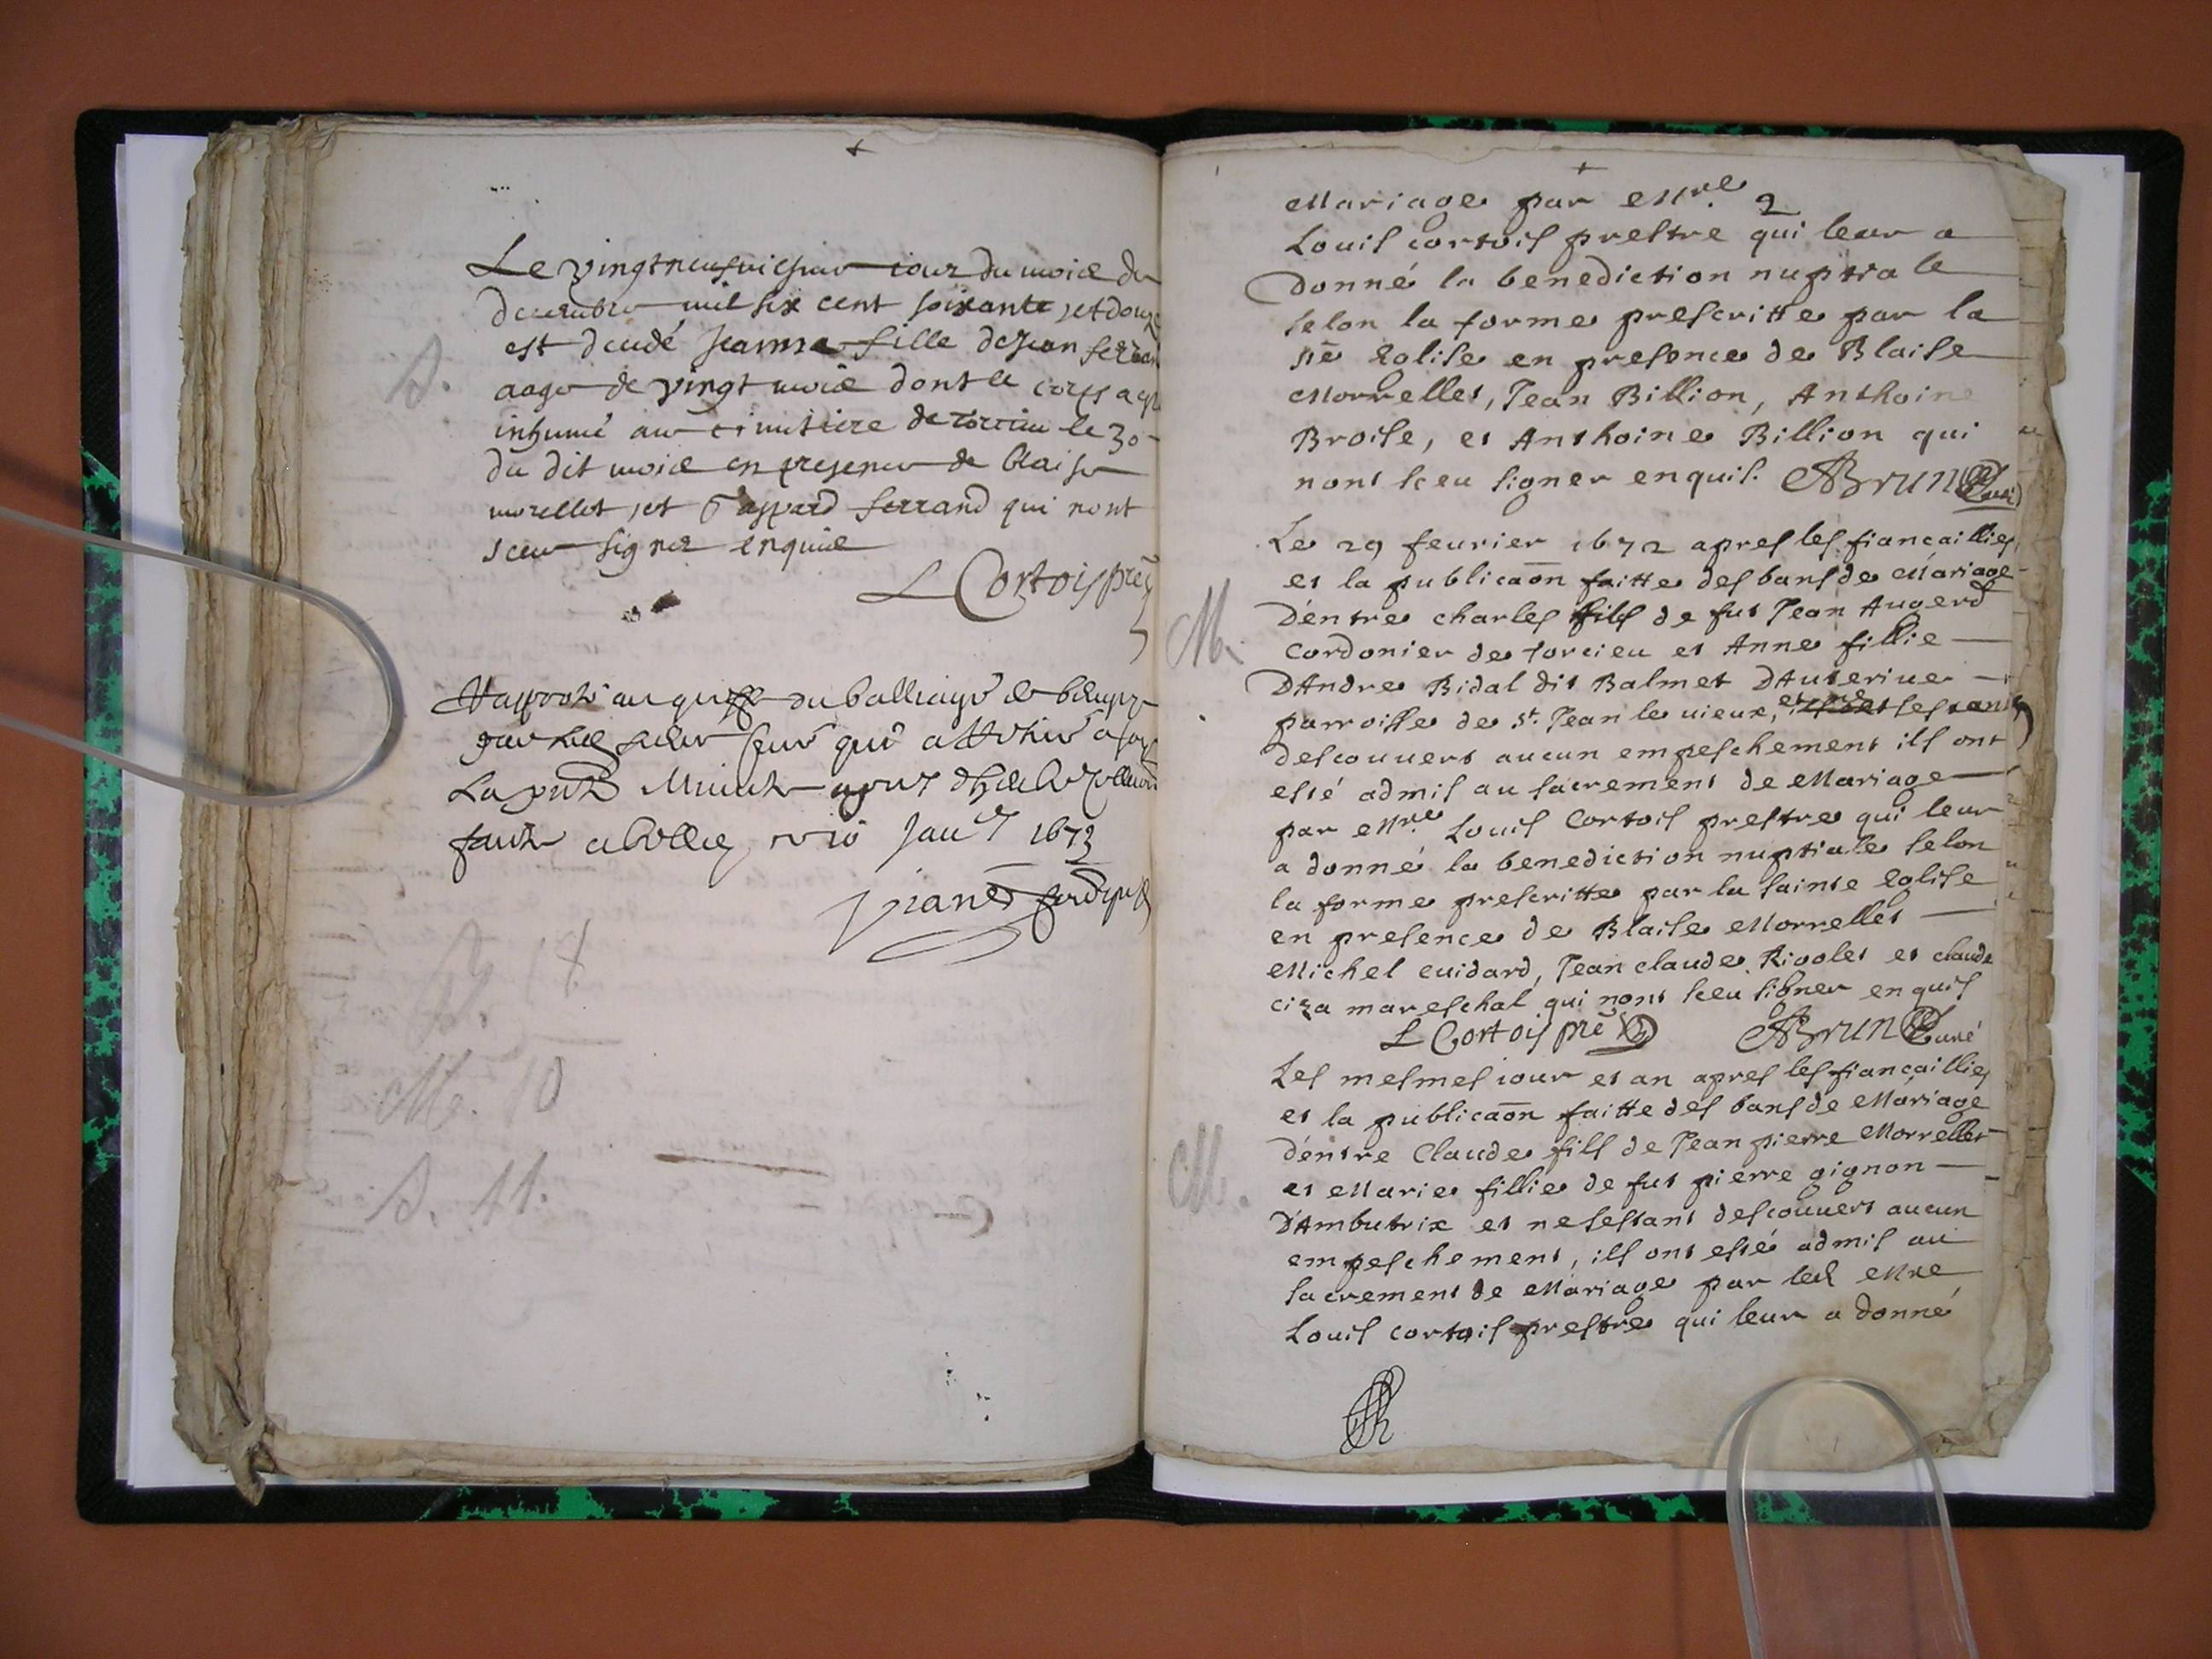 Le vingtneufviesme iour du mois de
decembre mil six cent soixante et douze
est decedé Jeanne fille de Jean ferrand
S.
aagee de vingt mois dont le corps a esté
inhumé au cimitiere de torcieu le 30
du dit mois en presence de blaise
morellet, et Gaspard ferrand qui nont
sceu signer enquis
L Cortois pre
du balliage de
qui a
Janer 1673
B. 18
M. 10
S. 11.
Mariage par Mre. 2
Louis cortois prestre qui leur a
donné la benediction nuptiale
selon la forme prescritte par la
ste Eglise en presence de Blaise
Morrellet, Jean Billion, Anthoine
Broise, et Anthoine Billion qui
nont sceu signer enquis. ABrun Curé
Le 29 feurier 1672 apres les fiancaillies
et la publicaõn faitte des bans de Mariage
M.
D'entre charles fils de fut Jean Augerd
cordonier de torcieu et Anne fillie
D'Andre Bidal dit Balmet D'Auterive
parroisse de St. Jean le vieux, et ne sestant
descouvert aucun empeschement ils ont
esté admis au sacrement de Mariage
par Mre Louis Cortois prestre qui leur
a donné la benediction nuptiale selon
la forme prescritte par la sainte Eglise
en presence de Blaise Morrellet
Michel cuidard, Jean claude Rigolet et claude
ciza mareschal qui nont sceu signer enquis
L Cortois pre ABrun Curé
Les mesmes iour et an apres les fiancaillies
et la publicaõn faitte des bans de Mariage
D'entre Claude fils de Jean pierre Morrellet
M.
et Marie fillie de fut pierre gignon
D'Ambutrix et ne sestant descouvert aucun
empeschement, ils ont esté admis au
sacrement de Mariage par led Mre
Louis cortois prestre qui leur a donné